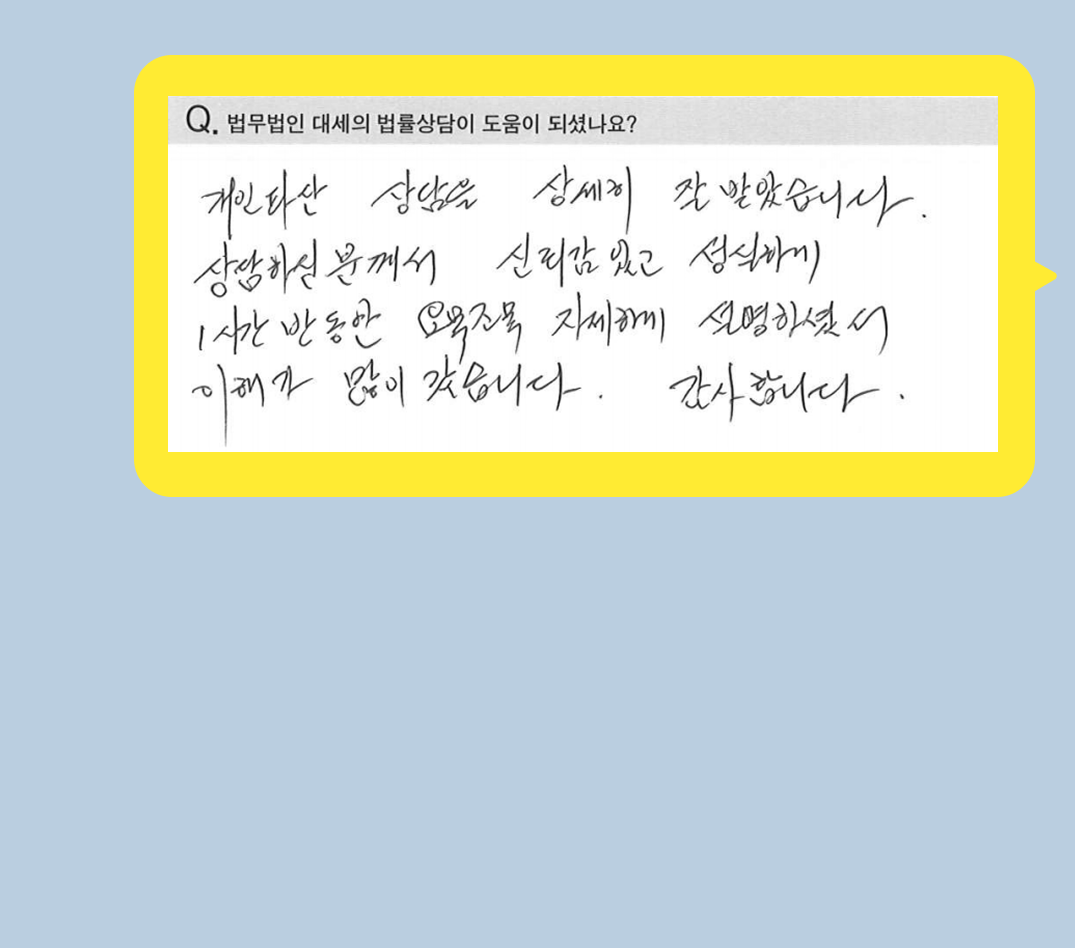 Q. 법무법인 대세의 법률상담이 도움이 되셨나요?
개인파산 상담을 상세히 잘 받았습니다.
상담하신 분께서 신뢰감 있고 성실하게
1시간 반 동안 요목조목 자세하게 설명하셨서
이해가 많이 갔습니다. 감사합니다.